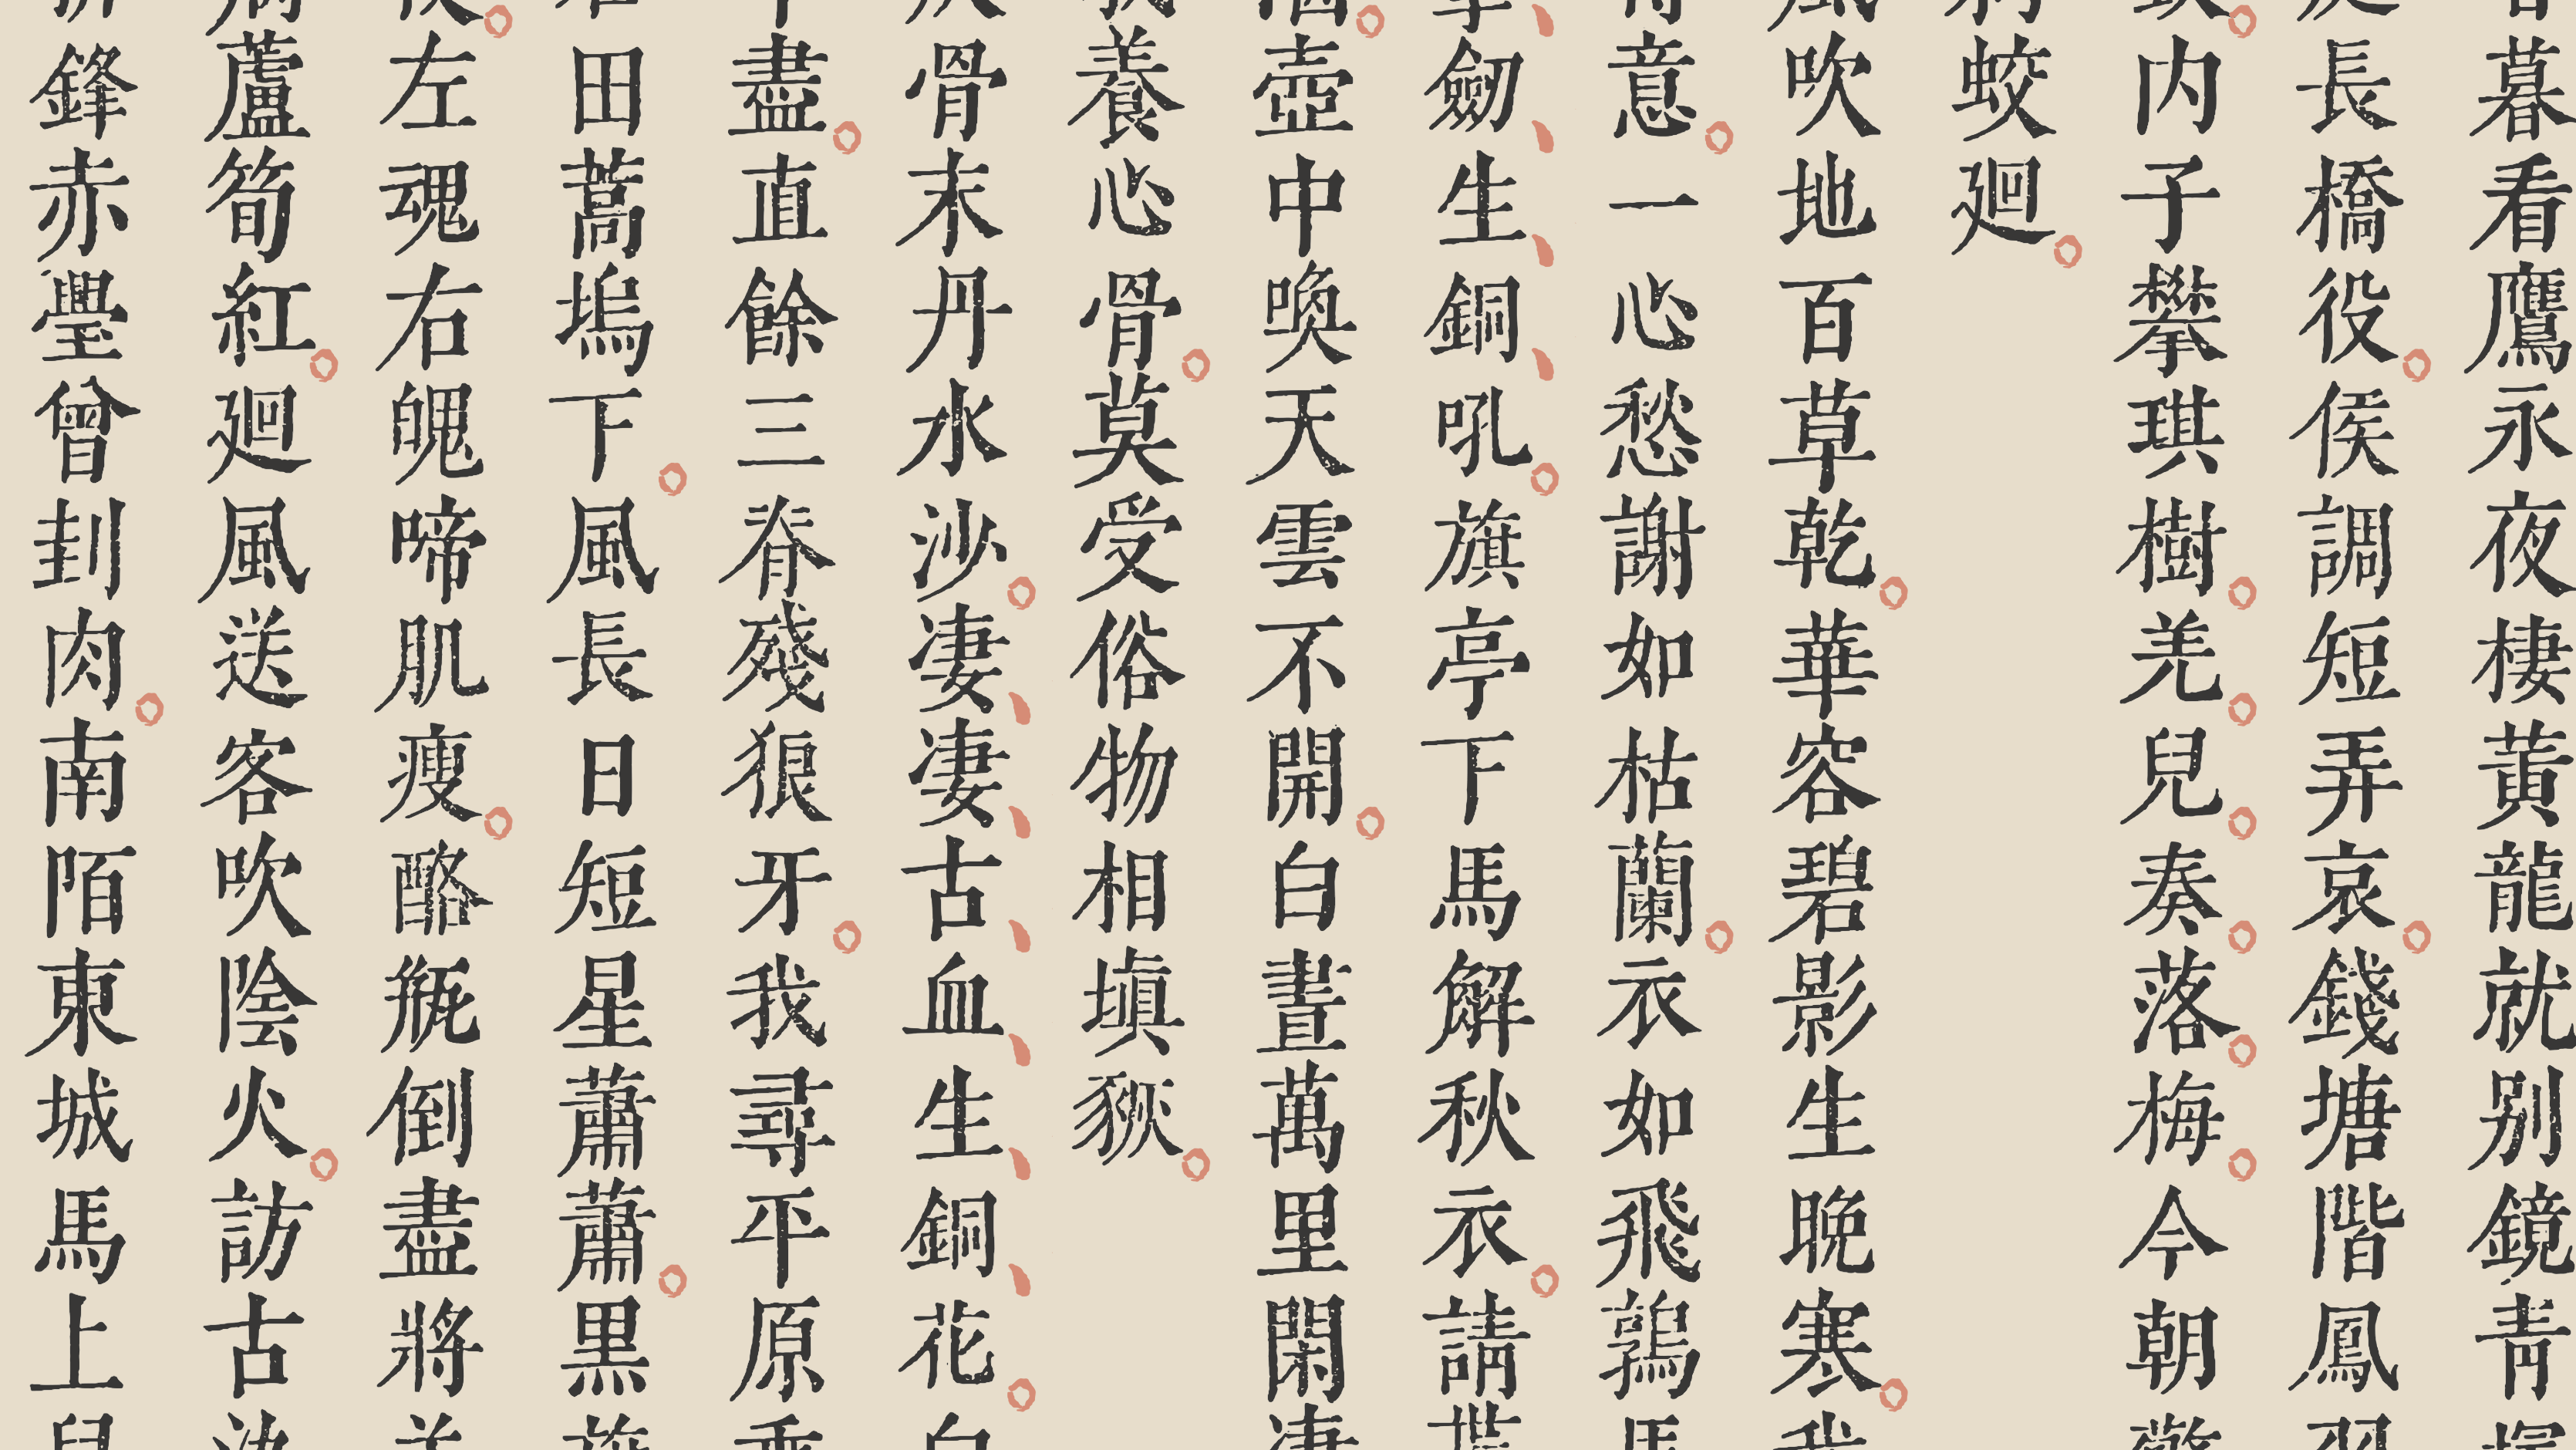 暮看鷹永夜棲黃龍就别鏡青
長橋役侯調短弄哀錢塘階鳳
内子攀琪樹羌兒奏落梅今朝
蛟廻
吹地百草乾華容碧影生晚寒
意一心愁謝如枯蘭衣如飛鶉
劒生銅吼旗亭下馬解秋衣請
壺中喚天雲不開白晝萬里閑
養心骨莫受俗物相塡豗
骨末丹水沙凄凄古血生銅花
盡直餘三脊殘狼牙我尋平原
田蒿塢下風長日短星蕭蕭黒
左魂右魄啼肌瘦酪瓶倒盡將
蘆筍紅廻風送客吹陰火訪古
鋒赤璺曾刲肉南陌東城馬上